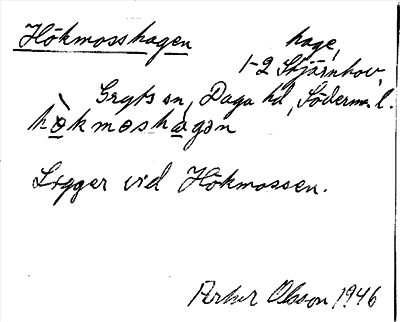 Hökmosshagen hage,
1-2 Stjärnhov,
Gryts sn, Daga hd, Söderm. l.
hö̀kmɷshagən
Ligger vid Hökmossen.
Arthur Olsson 1946